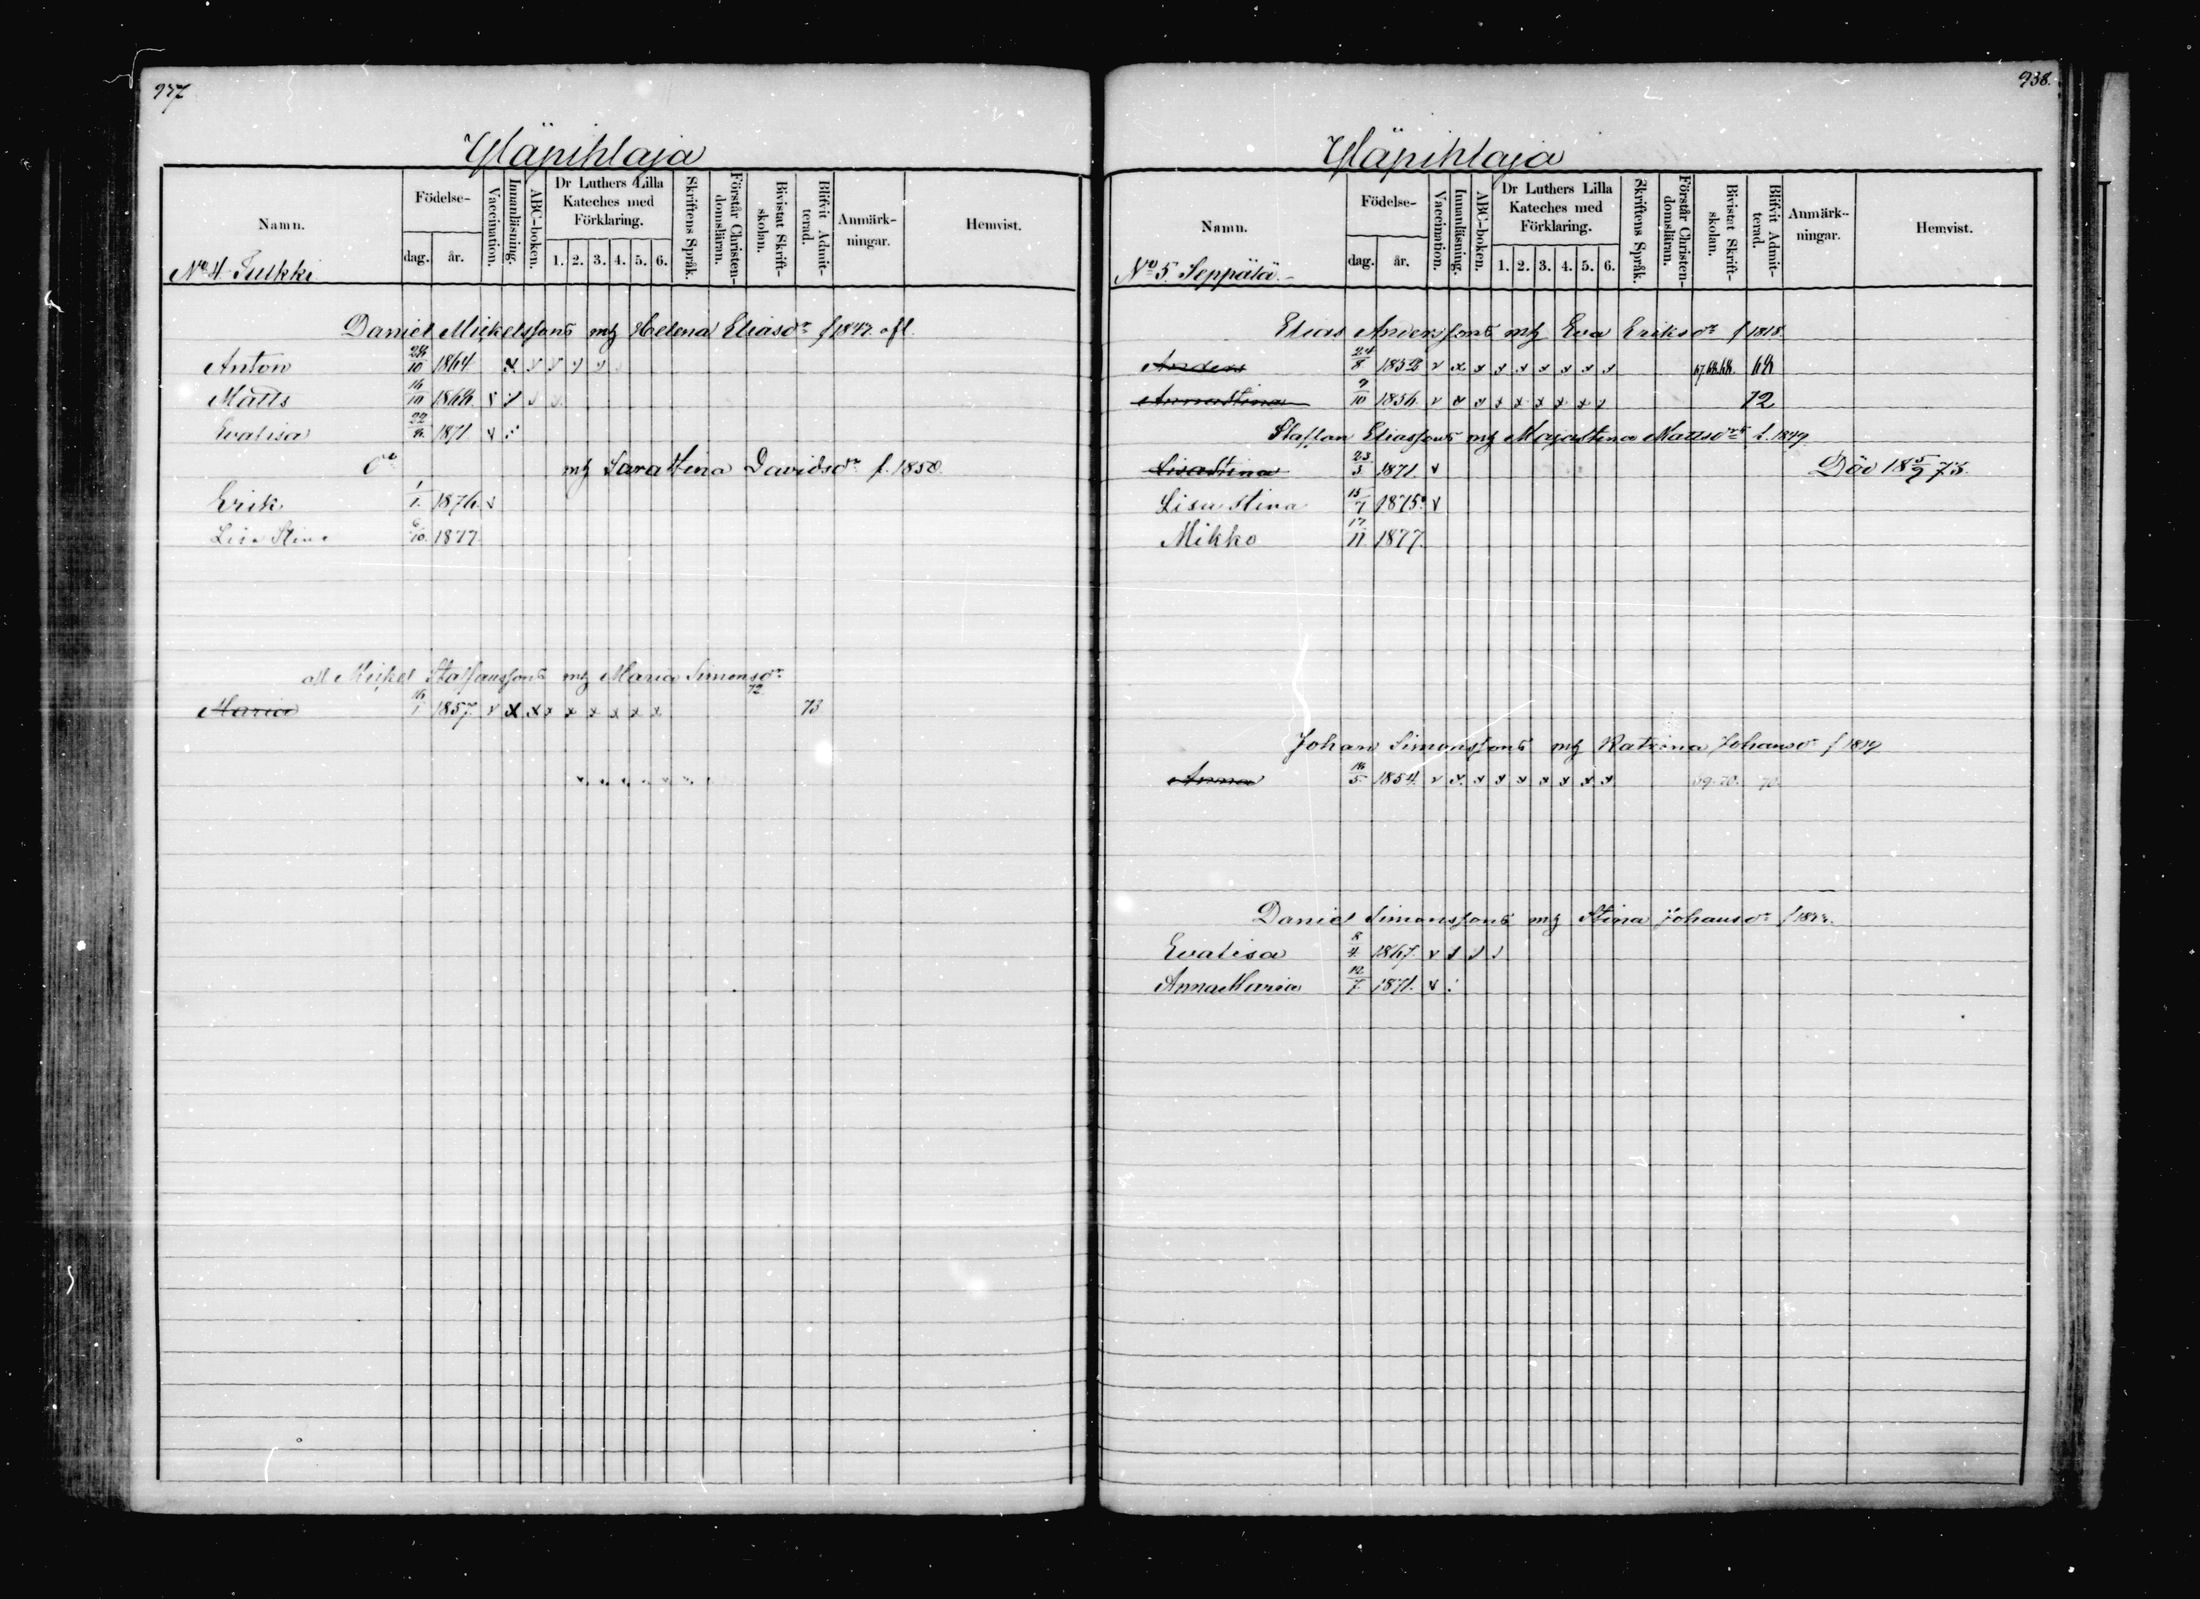 937
Yläpihlaja
Namn.
Födelse-
dag.
år.
Vaccination.
Innanläsning.
ABC-boken.
Dr Luthers Lilla
Kateches med
Förklaring.
1. 2. 3. 4. 5. 6.
Skriftens Språk.
Förstår Christen-
domsläran.
Bivistat Skrift-
skolan.
Blifvit Admit-
terad.
Anmärk-
ningar.
Hemvist.
No 4 Tulkki
Daniel Mickelssons mh Helena Eliasdr f 1847. afl.
Anton 28/10 1864 x v v v v v
Matts 16/10 1868 v v v v
Evalisa 22/9 1871 v
mh Sarastina Davidsdr f. 1850.
Erik 1/1 1876. v
Lisa Stina 6/10 1877
Mickel Staffanssons mh Maria Simonsdr
72
Maria 16/1 1857. v x x x x x x x x 73
938.
Yläpihlaja
Namn.
Födelse-
dag.
år.
Vaccination.
Innanläsning.
ABC-boken.
Dr Luthers Lilla
Kateches med
Förklaring.
1. 2. 3. 4. 5. 6.
Skriftens Språk.
Förstår Christen-
domsläran.
Bivistat Skrift-
skolan.
Blifvit Admit-
terad.
Anmärk-
ningar.
Hemvist.
No 5. Seppälä.
Elias Anderssons mh Eva Eriksdr f 1818.
Anders 24/8 1852 v x x x x x x x x 68
Annastina 9/10 1856. v x x x x x x x x 72
Staffan Eliassons mh Majastina Mattsdr f. 1849
Lisastina 23/3 1871. v Död 18 5/9 73.
Lisa Stina 15/7 1875. v
Mikko 17/11 1877.
Johan Simonssons mh Katrina Johansdr f 1819
Anna 16/5 1854. v x x x x x x x x 69. 70. 70.
Daniel Simonssons mh Stina Johansdr
Evalisa 8/4 1867. v v v v
Anna Maria 12/7 1871. v